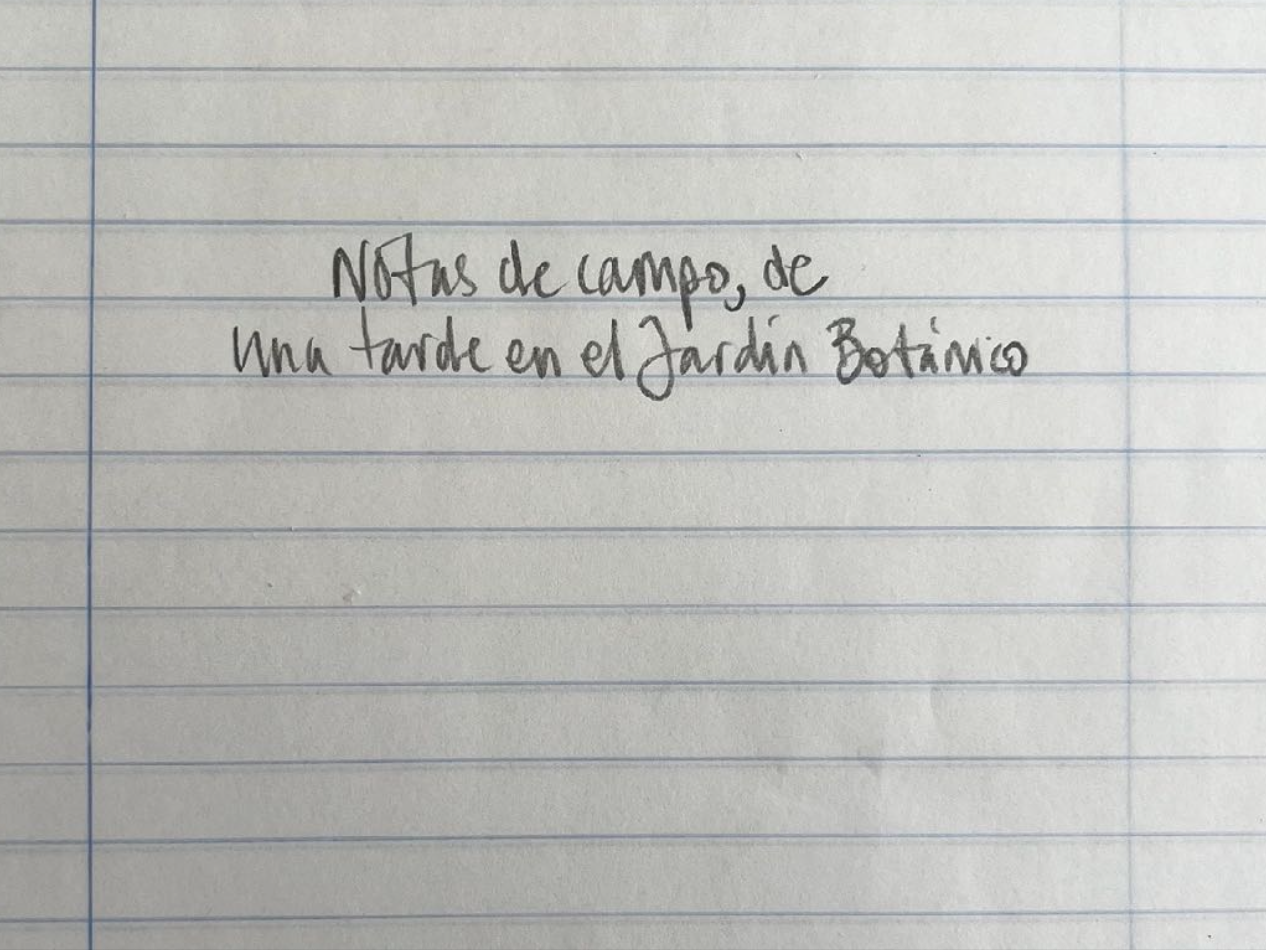 Notas de campo, de
una tarde en el Jardín Botánico